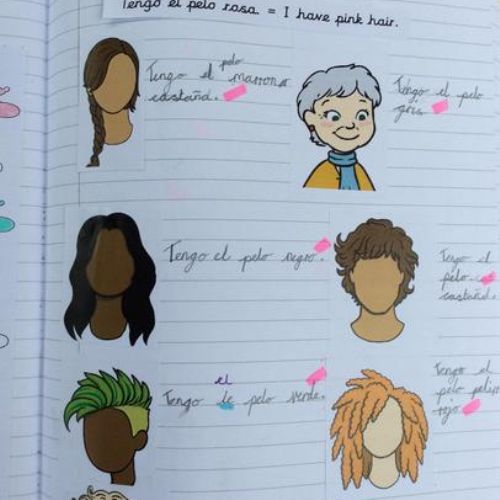 Tengo el pelo rosa. = I have pink hair.
pelo
Tengo el marrona
castaña.
Tengo el pelo
gris
Tengo el pelo negro.
Tengo el
pelo
castaña.
el
Tengo le pelo verde.
Tengo el
pelo pelip
rojo.